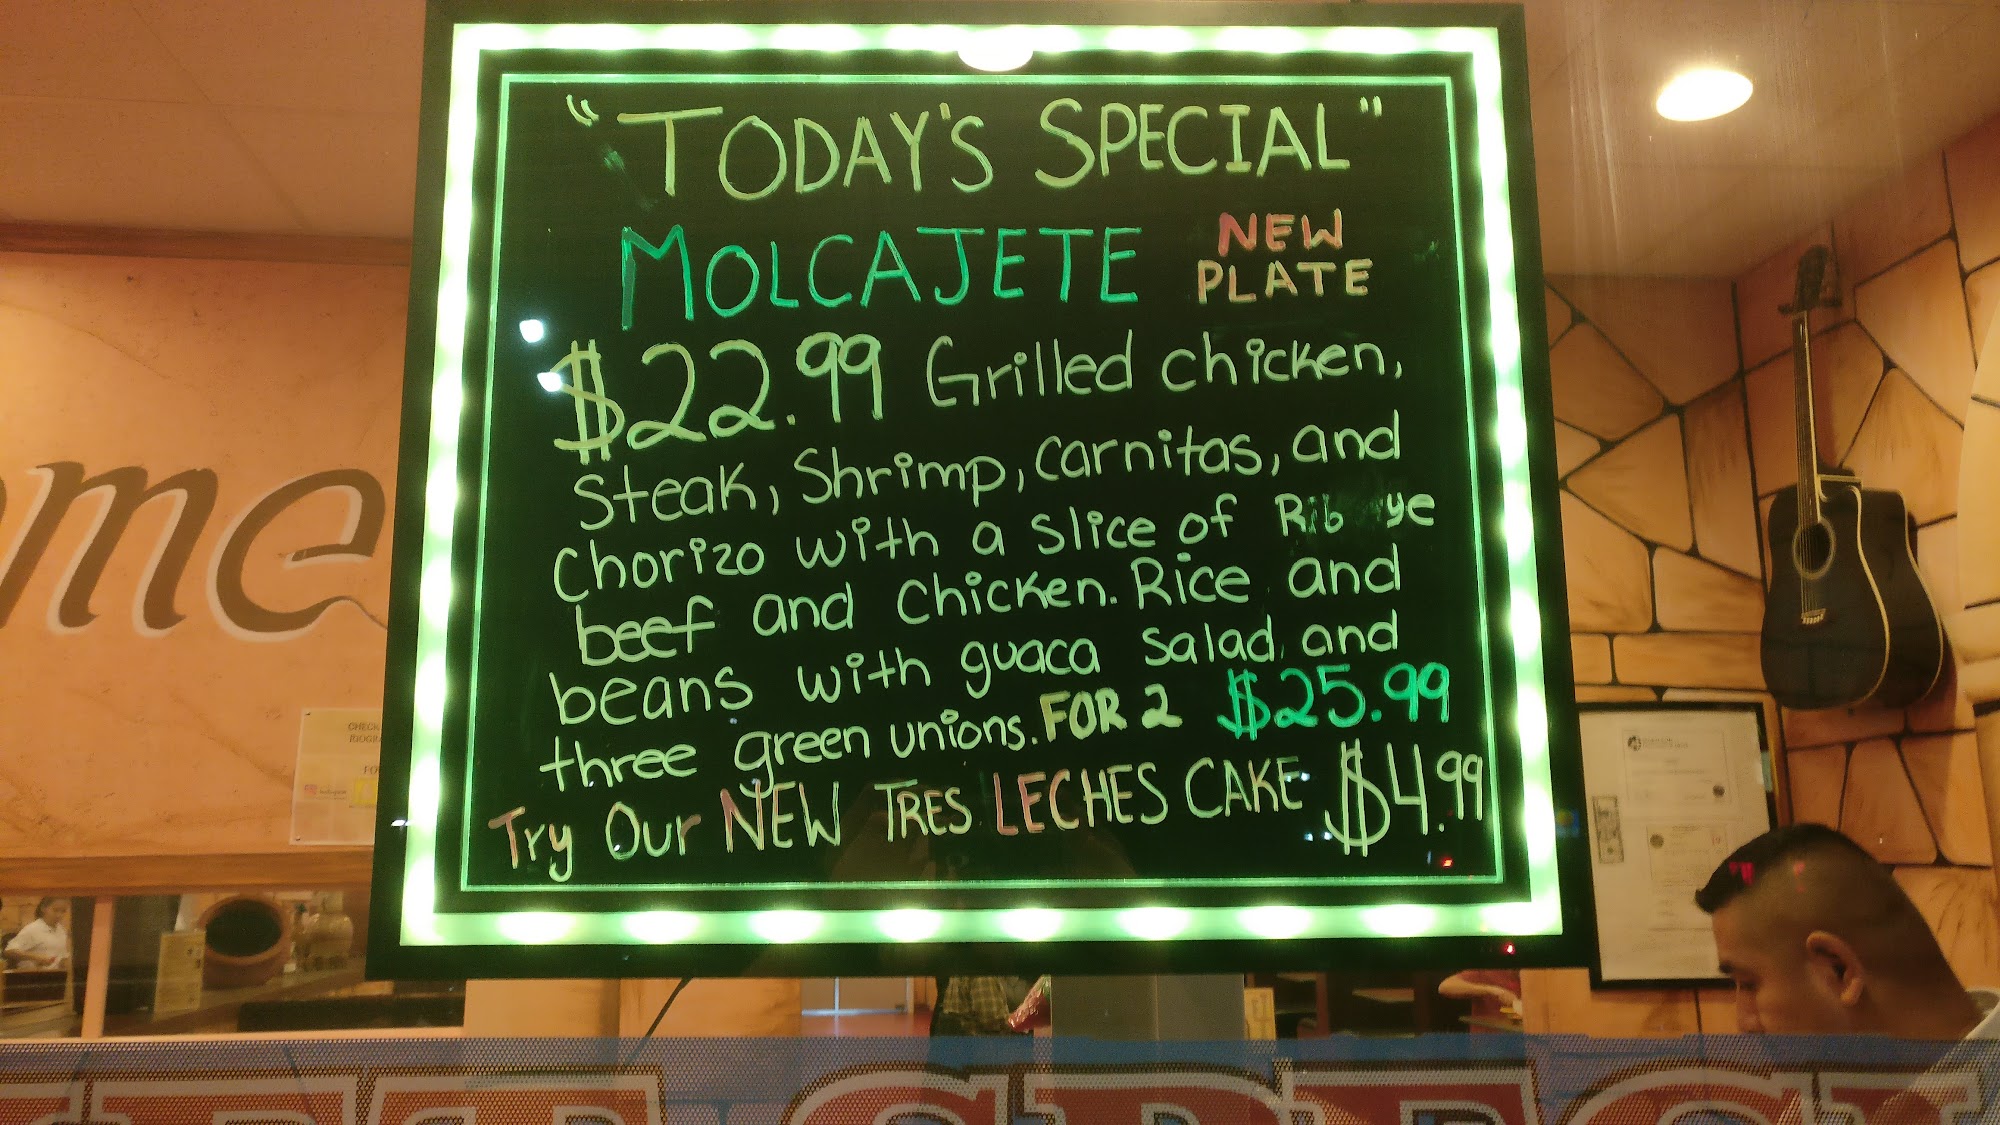 "TODAY'S SPECIAL"
MOLCAJETE NEW PLATE
$22.99 Grilled chicken,
Steak, Shrimp, carnitas, and
Chorizo with a slice of Rib ye
beef and chicken. Rice and
beans with guaca salad, and
three green unions. FOR 2 $25.99
Try Our NEW TRES LECHES CAKE $4.99
me